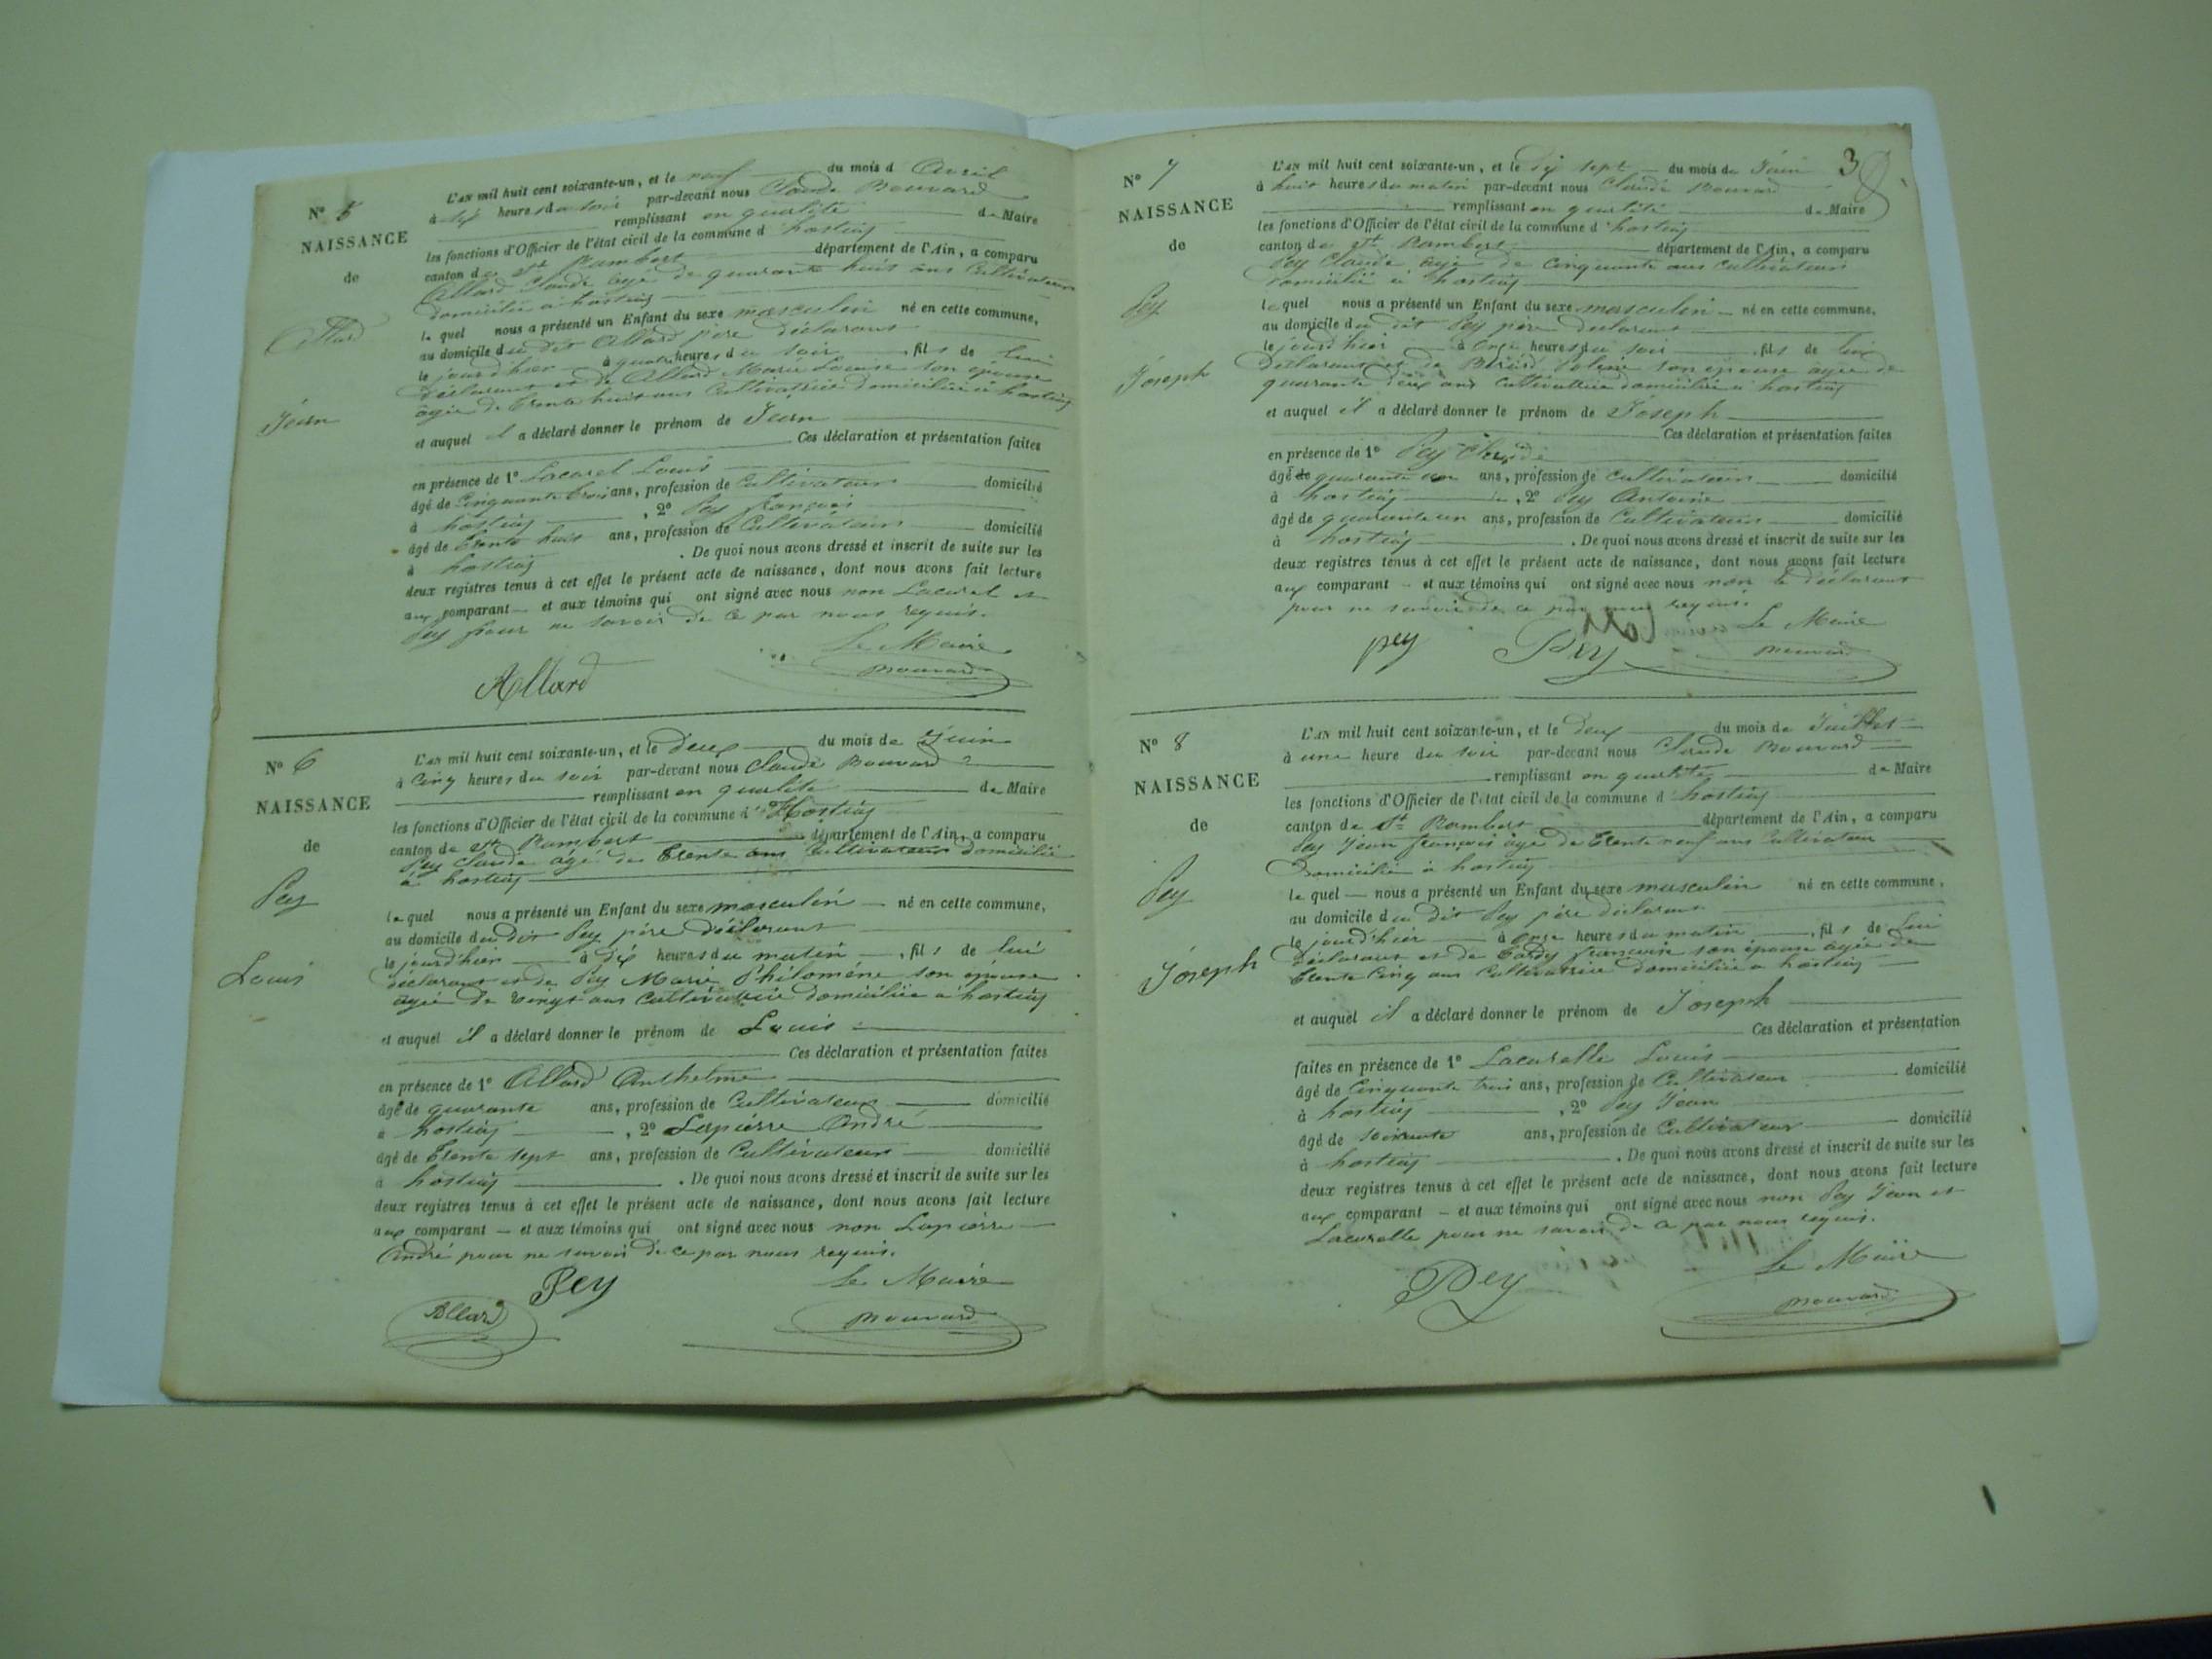 N° 5
NAISSANCE
de
Allard
Jean
L'AN mil huit cent soixante-un, et le neuf du mois d Avril
à six heures du soir par-devant nous Claude Bouvard
remplissant en qualité de Maire
les fonctions d'Officier de l'état civil de la commune d'hostiaz
canton de St Rambert département de l'Ain, a comparu
Allard Claude âgé de quarante huit ans Cultivateur
domicilié à hostiaz
le quel nous a présenté un Enfant du sexe masculin né en cette commune,
au domicile du dit Allard père déclarant
le jourd'hier à quatre heures du soir, fils de lui
déclarant et de Allard Marie Louise son épouse
âgée de trente huit ans Cultivatrice domiciliée à hostiaz
et auquel il a déclaré donner le prénom de Jean
Ces déclaration et présentation faites
en présence de 1° Lacarel Louis
âgé de Cinquante trois ans, profession de Cultivateur domicilié
à hostiaz, 2° Pey françois
âgé de trente huit ans, profession de Cultivateur domicilié
à hostiaz. De quoi nous avons dressé et inscrit de suite sur les
deux registres tenus à cet effet le présent acte de naissance, dont nous avons fait lecture
aux comparant et aux témoins qui ont signé avec nous non Lacarel et
Pey pour ne savoir de ce par nous requis.
Le Maire
Allard Bouvard
N° 6
NAISSANCE
de
Pey
Louis
L'AN mil huit cent soixante-un, et le deux du mois de Juin
à Cinq heures du soir par-devant nous Claude Bouvard
remplissant en qualité de Maire
les fonctions d'Officier de l'état civil de la commune d'Hostiaz
canton de St Rambert département de l'Ain, a comparu
Pey Claude âgé de trente ans Cultivateur domicilié
à hostiaz
le quel nous a présenté un Enfant du sexe masculin né en cette commune,
au domicile du dit Pey père déclarant
le jourd'hier à dix heures du matin, fils de lui
déclarant et de Pey Marie Philomène son épouse
âgée de vingt ans Cultivatrice domiciliée à hostiaz
et auquel il a déclaré donner le prénom de Louis
Ces déclaration et présentation faites
en présence de 1° Allard Anthelme
âgé de quarante ans, profession de Cultivateur domicilié
à hostiaz, 2° Lapierre André
âgé de trente sept ans, profession de Cultivateur domicilié
à hostiaz. De quoi nous avons dressé et inscrit de suite sur les
deux registres tenus à cet effet le présent acte de naissance, dont nous avons fait lecture
aux comparant et aux témoins qui ont signé avec nous non Lapierre
André pour ne savoir de ce par nous requis.
Pey Le Maire
Allard Bouvard
3
N° 7
NAISSANCE
de
Pey
Joseph
L'AN mil huit cent soixante-un, et le dix sept du mois de Juin
à huit heures du matin par-devant nous Claude Bouvard
remplissant en qualité de Maire
les fonctions d'Officier de l'état civil de la commune d'hostiaz
canton de St Rambert département de l'Ain, a comparu
Pey Claude âgé de Cinquante ans Cultivateur
domicilié à hostiaz
le quel nous a présenté un Enfant du sexe masculin né en cette commune,
au domicile du dit Pey père déclarant
le jourd'hier à onze heures du soir, fils de lui
déclarant et de son épouse âgée de
quarante deux ans Cultivatrice domiciliée à hostiaz
et auquel il a déclaré donner le prénom de Joseph
Ces déclaration et présentation faites
en présence de 1° Pey Claude
âgé de quarante ans, profession de Cultivateur domicilié
à hostiaz, 2° Pey Antoine
âgé de quarante un ans, profession de Cultivateur domicilié
à hostiaz. De quoi nous avons dressé et inscrit de suite sur les
deux registres tenus à cet effet le présent acte de naissance, dont nous avons fait lecture
aux comparant et aux témoins qui ont signé avec nous non le déclarant
pour ne savoir de ce par nous requis
Le Maire
pey Pey Bouvard
N° 8
NAISSANCE
de
Pey
Joseph
L'AN mil huit cent soixante-un, et le deux du mois de Juillet
à une heure du soir par-devant nous Claude Bouvard
remplissant en qualité de Maire
les fonctions d'Officier de l'état civil de la commune d'hostiaz
canton de St Rambert département de l'Ain, a comparu
Pey Jean françois âgé de trente neuf ans Cultivateur
Domicilié à hostiaz
le quel nous a présenté un Enfant du sexe masculin né en cette commune,
au domicile du dit Pey père déclarant
le jourd'hier à onze heures du matin, fils de lui
déclarant et de françoise son épouse âgée de
trente Cinq ans Cultivatrice domiciliée à hostiaz
et auquel il a déclaré donner le prénom de Joseph
Ces déclaration et présentation
faites en présence de 1° Lacarelle Louis
âgé de Cinquante trois ans, profession de Cultivateur domicilié
à hostiaz, 2° Pey Jean
âgé de soixante ans, profession de Cultivateur domicilié
à hostiaz. De quoi nous avons dressé et inscrit de suite sur les
deux registres tenus à cet effet le présent acte de naissance, dont nous avons fait lecture
aux comparant et aux témoins qui ont signé avec nous non Pey Jean et
Lacarelle pour ne savoir de ce par nous requis.
Le Maire
Pey Bouvard